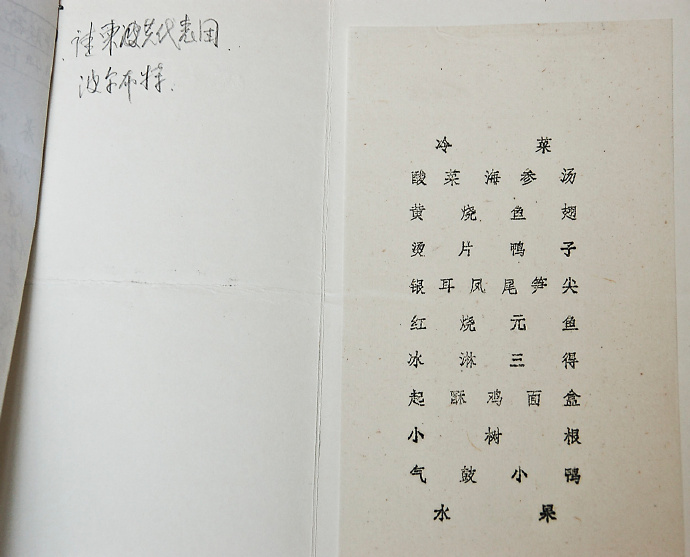 谨柬波尔代表团
波尔布特
冷菜
酸菜海参汤
黄烧鱼翅
烫片鸭子
银耳凤尾笋尖
红烧元鱼
冰淋三得
起酥鸡面盒
小树根
气鼓小鸭
水果